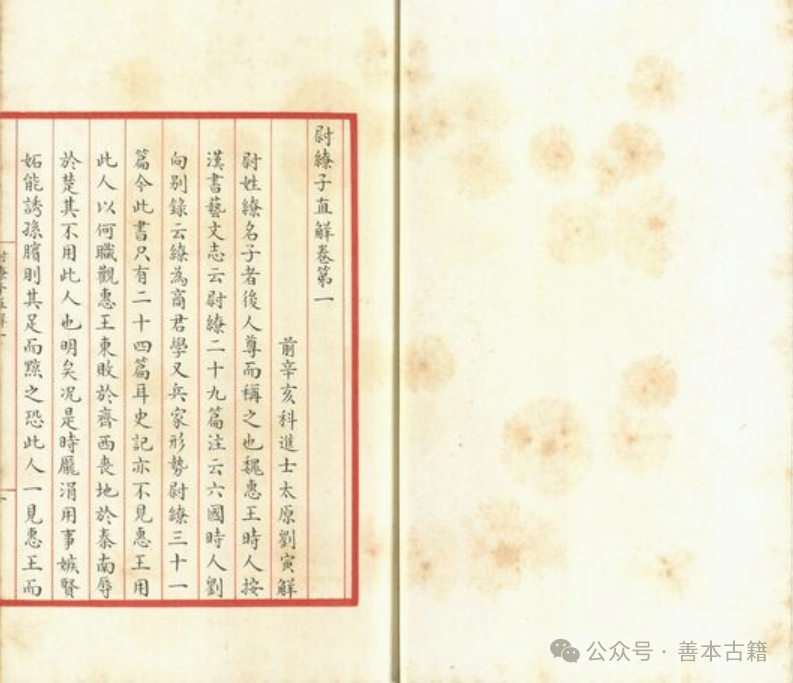 尉繚子直解卷第一
前辛亥科進士太原劉寅解
尉姓繚名子者後人尊而稱之也魏惠王時人按
漢書藝文志云尉繚二十九篇注云六國時人劉
向別錄云繚為商君學又兵家形勢尉繚三十一
篇今此書只有二十四篇耳史記亦不見惠王用
此人以何職觀惠王東敗於齊西喪地於秦南辱
於楚其不用此人也明矣况是時龐涓用事嫉賢
妬能誘孫臏刖其足而黥之恐此人一見惠王而
公众号·善本古籍